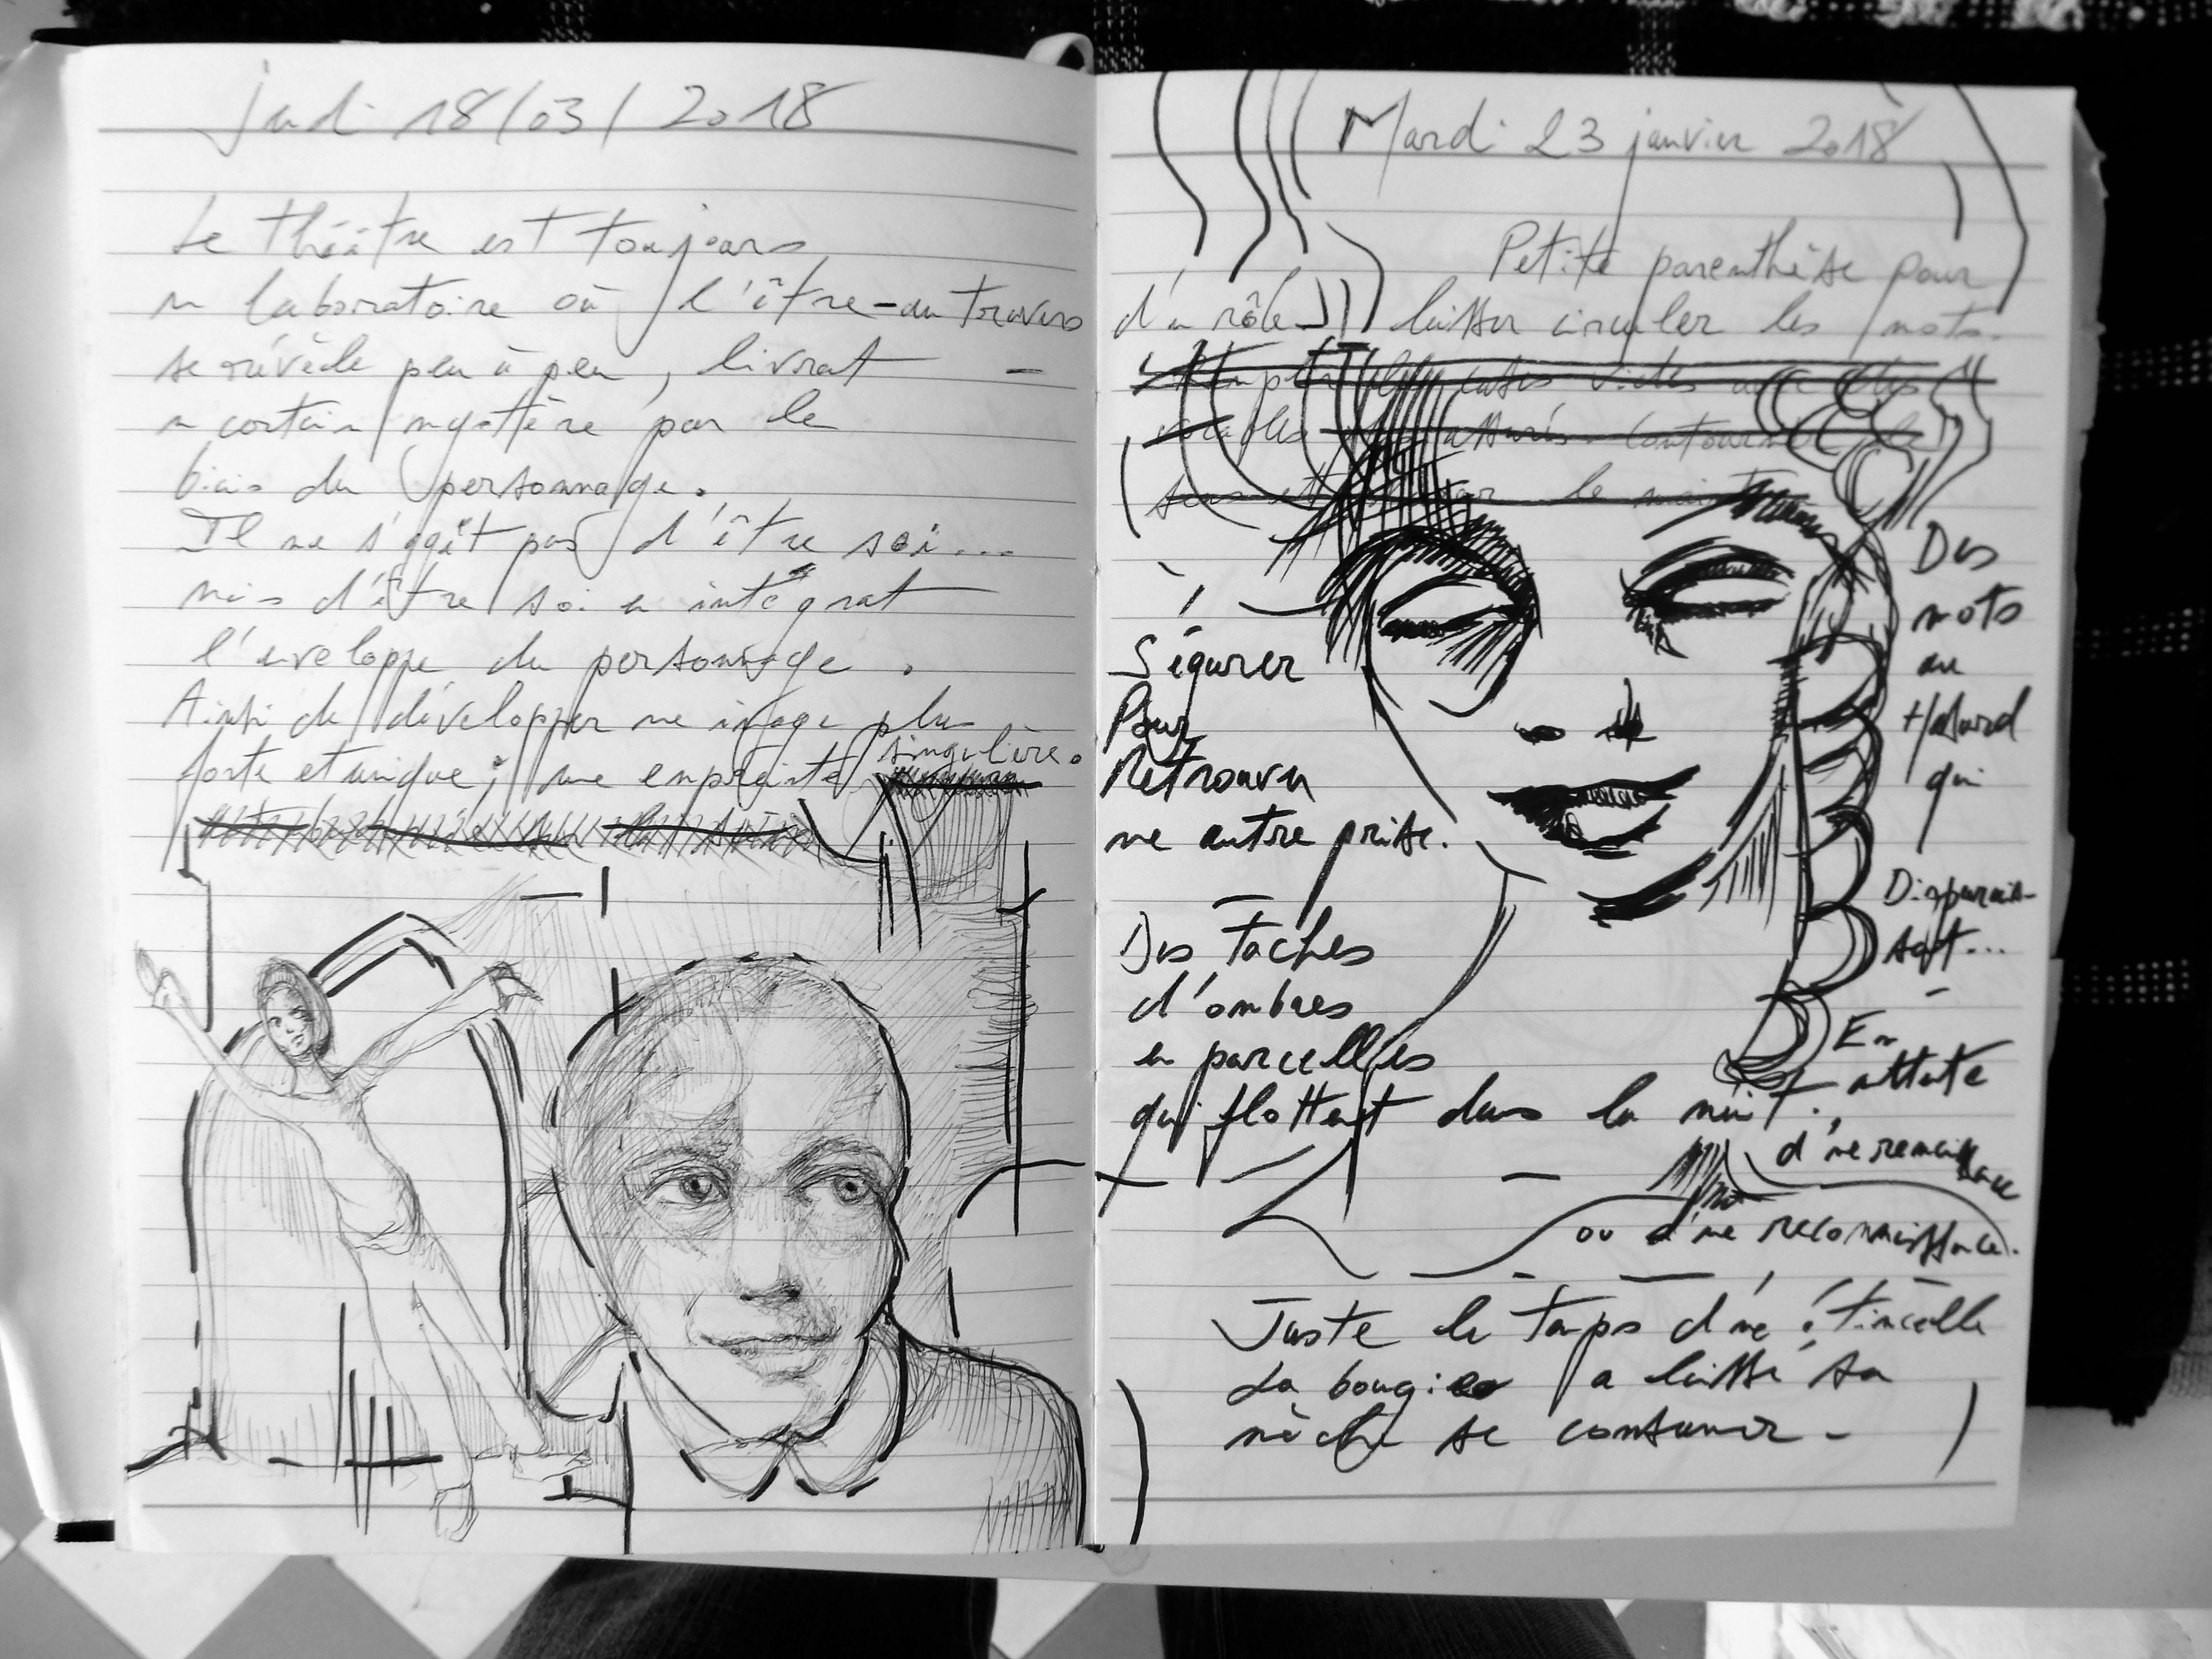 jeudi 18/03/2018
Le théâtre est toujours
un laboratoire où l'être - au travers
d'un rôle -
se révèle peu à peu, livrant -
un certain mystère par le
biais du personnage.
Il ne s'agit pas d'être soi...
mais d'être soi en intégrant
l'enveloppe du personnage.
Ainsi de développer une image plus
forte et unique; une empreinte singulière.
Mardi 23 janvier 2018
Petite parenthèse pour
laisser circuler les mots.
cases vides avec des
contourner le
S'égarer
Pour
Retrouver
une autre prise.
Des taches
d'ombres
en parcelles
qui flottent dans la nuit.
Des
mots
au
Hasard
qui
Disparais-
sent...
En
attente
d'une renaissance
ou d'une reconnaissance.
Juste le temps d'une étincelle
La bougie a laissé sa
mèche se consumer -